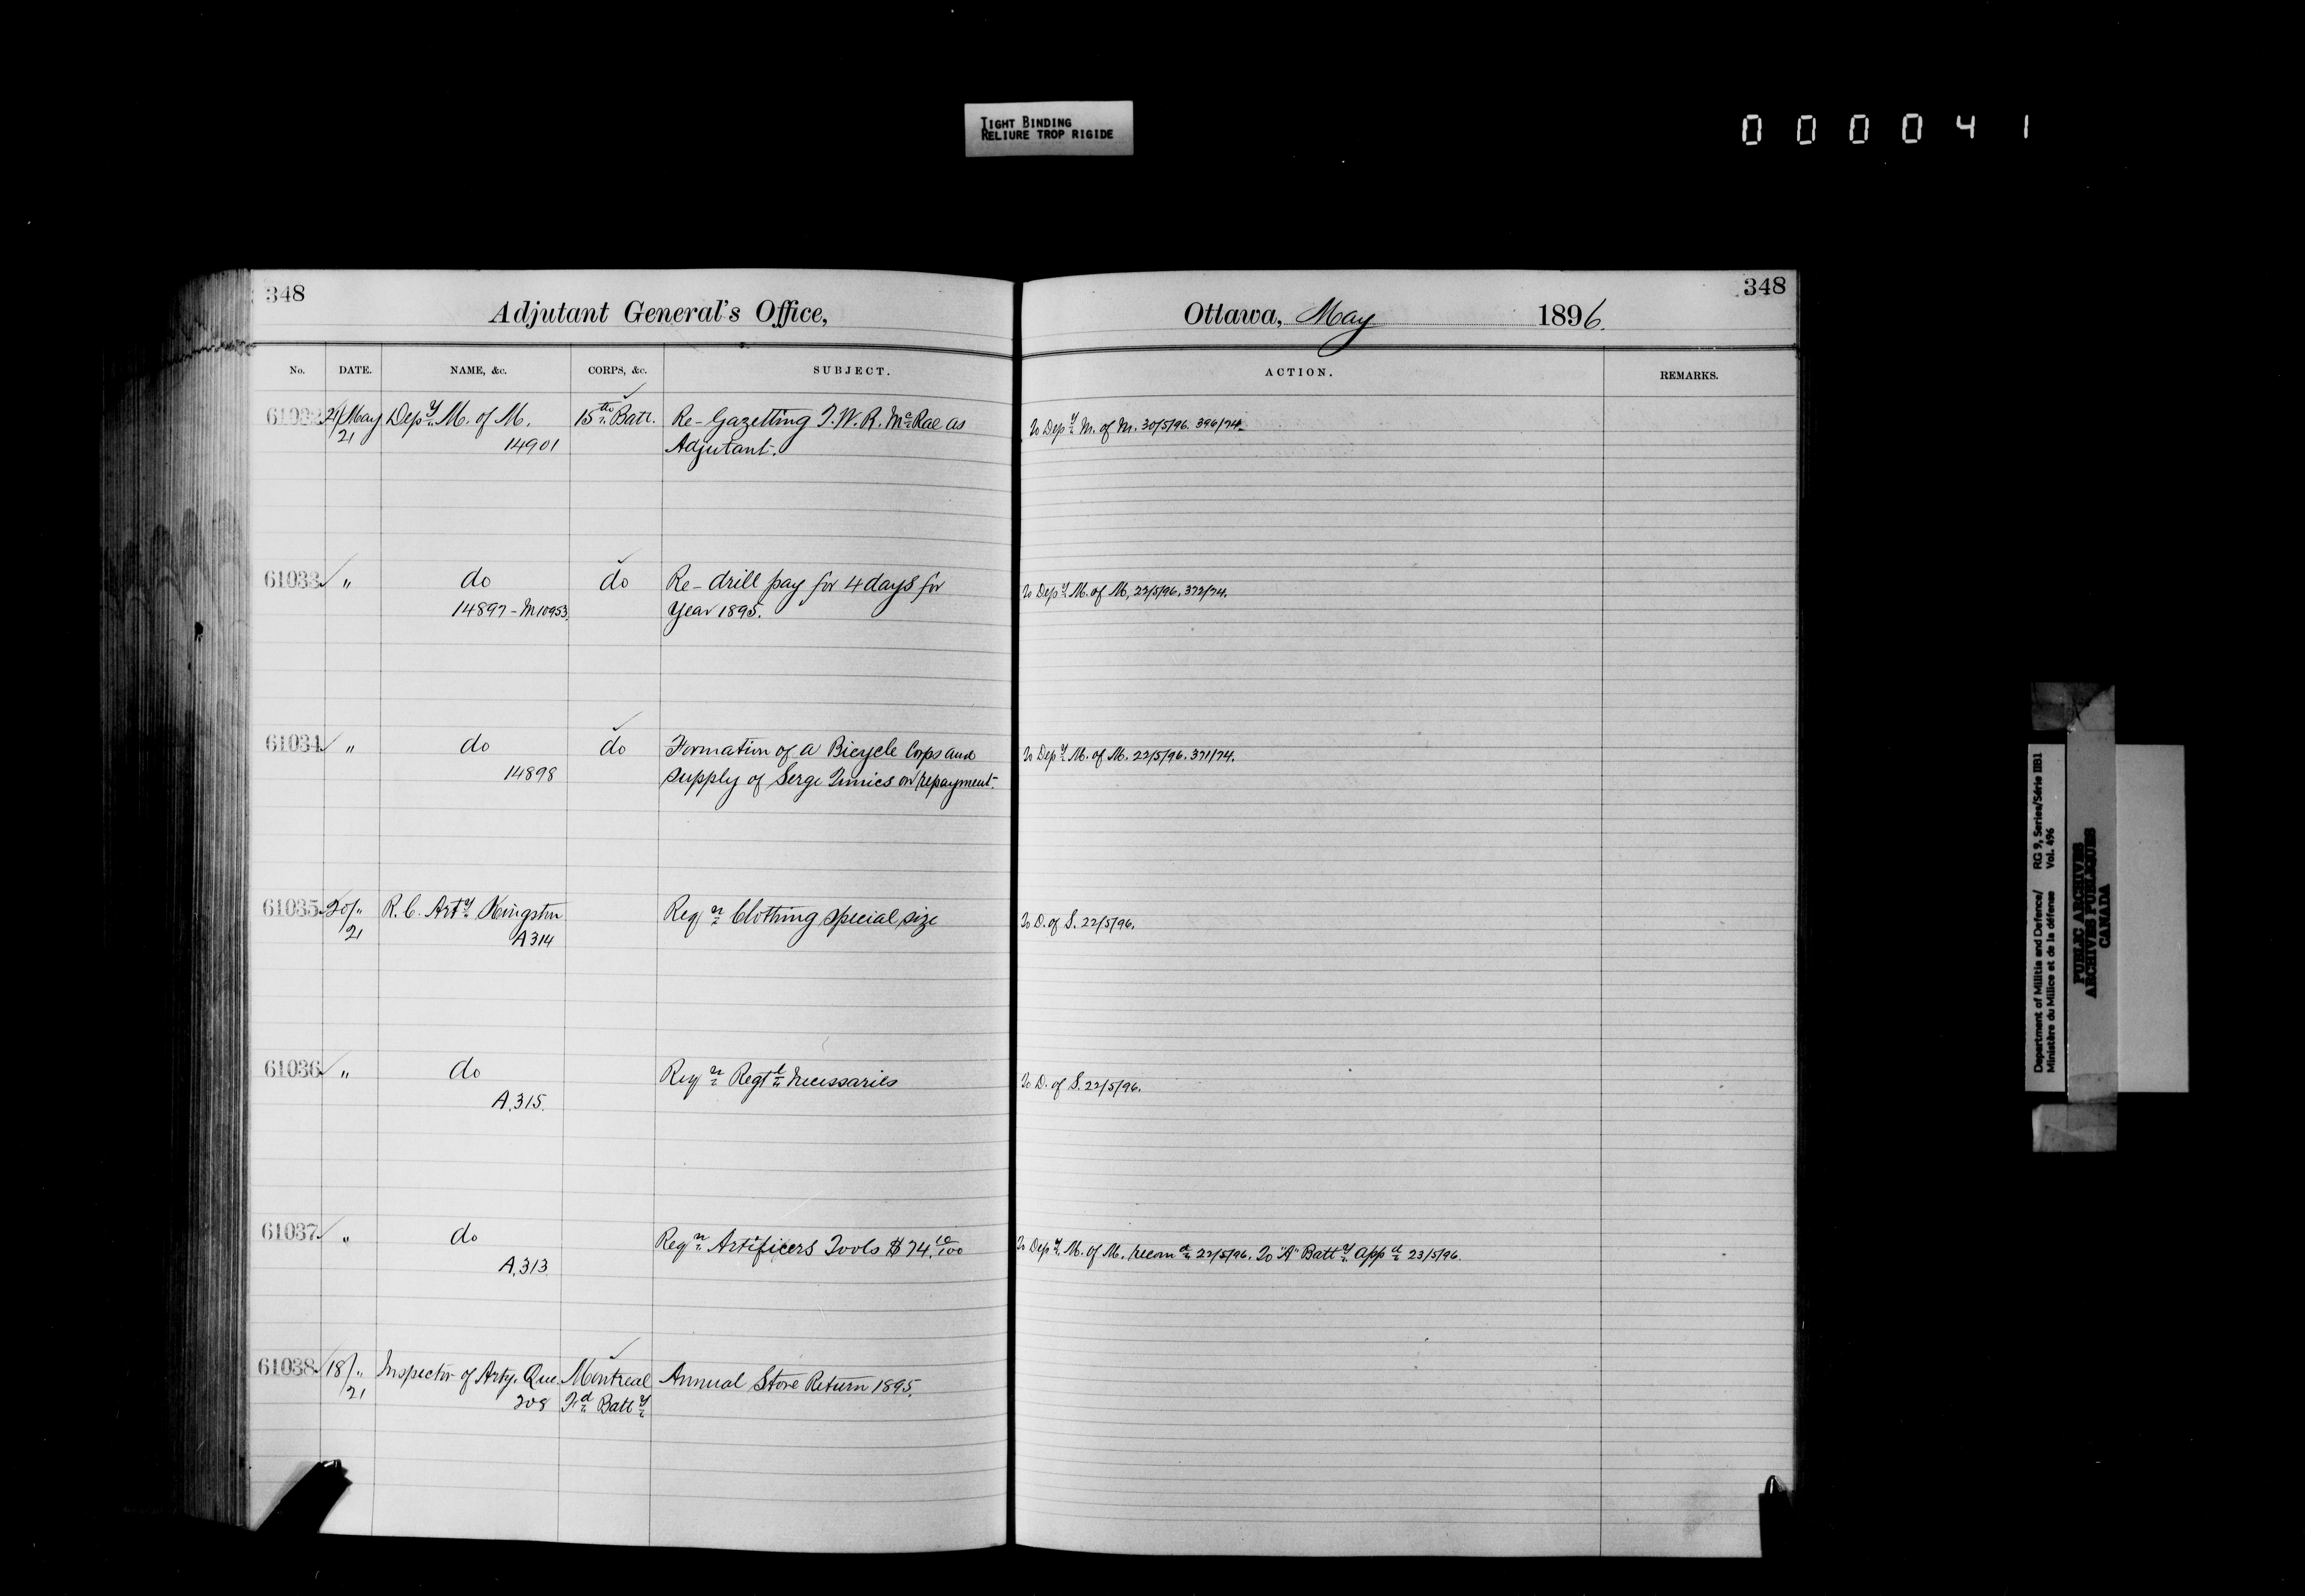 TIGHT BINDING
RELIURE TROP RIGIDE
000041
348
Adjutant General's Office,
No. DATE. NAME, &c. CORPS, &c. SUBJECT.
61032 21/May Depy. M. of M. 15th Batt. Re-Gazetting T. W. R. McRae as
21 14901 Adjutant.
61033 " do do Re-drill pay for 4 days for
14897-M10953. Year 1895.
61034 " do do Formation of a Bicycle Corps and
14898 supply of Serge Tunics on repayment.
61035 20/" R. C. Arty Kingston Reqn Clothing special size
21 A314
61036 " do Reqn Regtl necessaries
A.315.
61037 " do Reqn Artificers Tools $74.10/100
A.313
61038 18/" Inspector of Arty. Que. Montreal Annual Store Return 1895.
21 208 Fd Batty
348
Ottawa, May 1896.
ACTION. REMARKS.
To Depy M. of M. 30/5/96. 396/74.
To Depy M. of M, 22/5/96. 372/74.
To Depy M. of M. 22/5/96. 371/74.
To D. of S. 22/5/96.
To D. of S. 22/5/96.
To Depy M. of M. recomd 22/5/96. To "A" Batty appd 23/5/96.
Department of Militia and Defence/ RG 9, Series/Série IIB1
Ministère du Milice et de la défense Vol. 496
PUBLIC ARCHIVES
ARCHIVES PUBLIQUES
CANADA